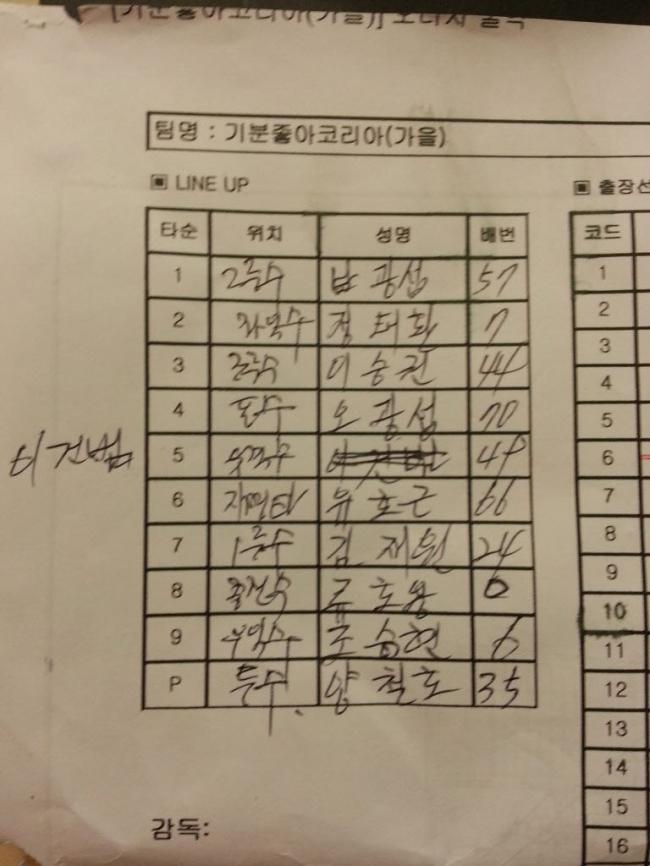 [기분좋아코리아(가을)] 오더지 출력
팀명 : 기분좋아코리아(가을)
▣ LINE UP
▣ 출장선
타순 위치 성명 배번
코드
1 2루수 박광섭 57
1
2 좌익수 정태화 7
2
3 이승권 44
3
4 포수 오광섭 70
4
이건범
5 49
5
6 지명타 유호근 66
6
7 1루수 김재원 24
7
8 호용 0
8
9 우익수 조승현 6
9
10
P 투수 양철호 35
11
12
13
14
15
16
감독: